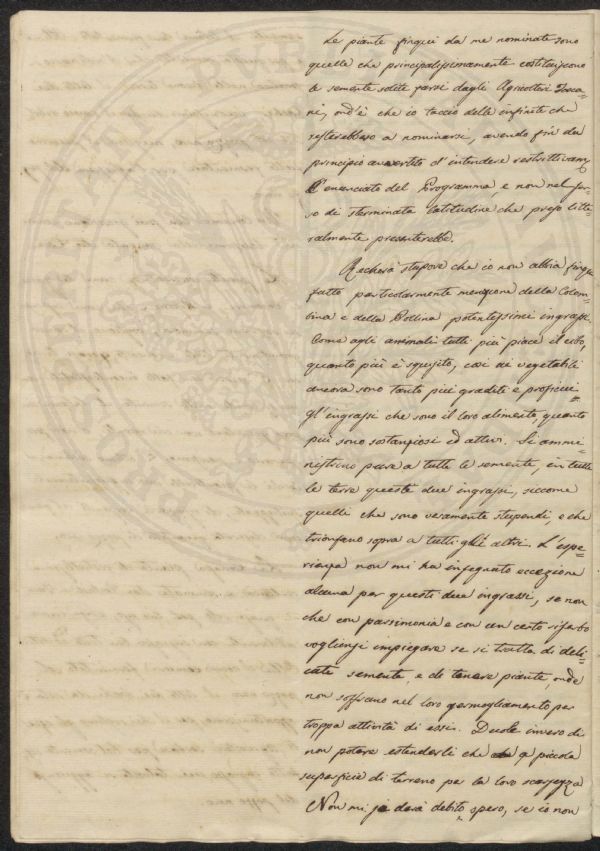 Le piante finqui da me nominate sono
quelle che principalissimamente costituiscono
le semente solite farsi dagli Agricoltori Tosca=
ni, ond'è che io taccio delle infinite che
resterebbero a nominarsi, avendo fin da
principio avvertito d'intendere restrittivamte
l'enunciato del Programma, e non nel sen=
so di sterminata latitudine che preso litte=
ralmente presenterebbe.
Recherà stupore che io non abbia finqui
fatto particolarmente menzione della Colom=
bina e della Pollina potentissimi ingrassi.
Come agli animali tutti più piace il cibo,
quanto più è squisito, così ai vegetabili
ancora sono tanto più graditi e proficui
gl'ingrassi che sono il loro alimento quanto
più sono sostanziosi ed attivi. Si ammi=
nistrino pure a tutte le semente, in tutte
le terre questi due ingrassi, siccome
quelli che sono veramente stupendi, e che
trionfano sopra a tutti gli altri. L'espe=
rienza non mi ha insegnato eccezione
alcuna per questi due ingrassi, se non
che con parsimonia e con un certo riserbo
voglionsi impiegare se si tratta di deli=
cate semente, e di tenere piante, onde
non soffrano nel loro germogliamento per
troppa attività di essi. Duole invero di
non potere estenderli che a piccola
superficie di terreno per la loro scarsezza
Non mi si darà debito, spero, se io non